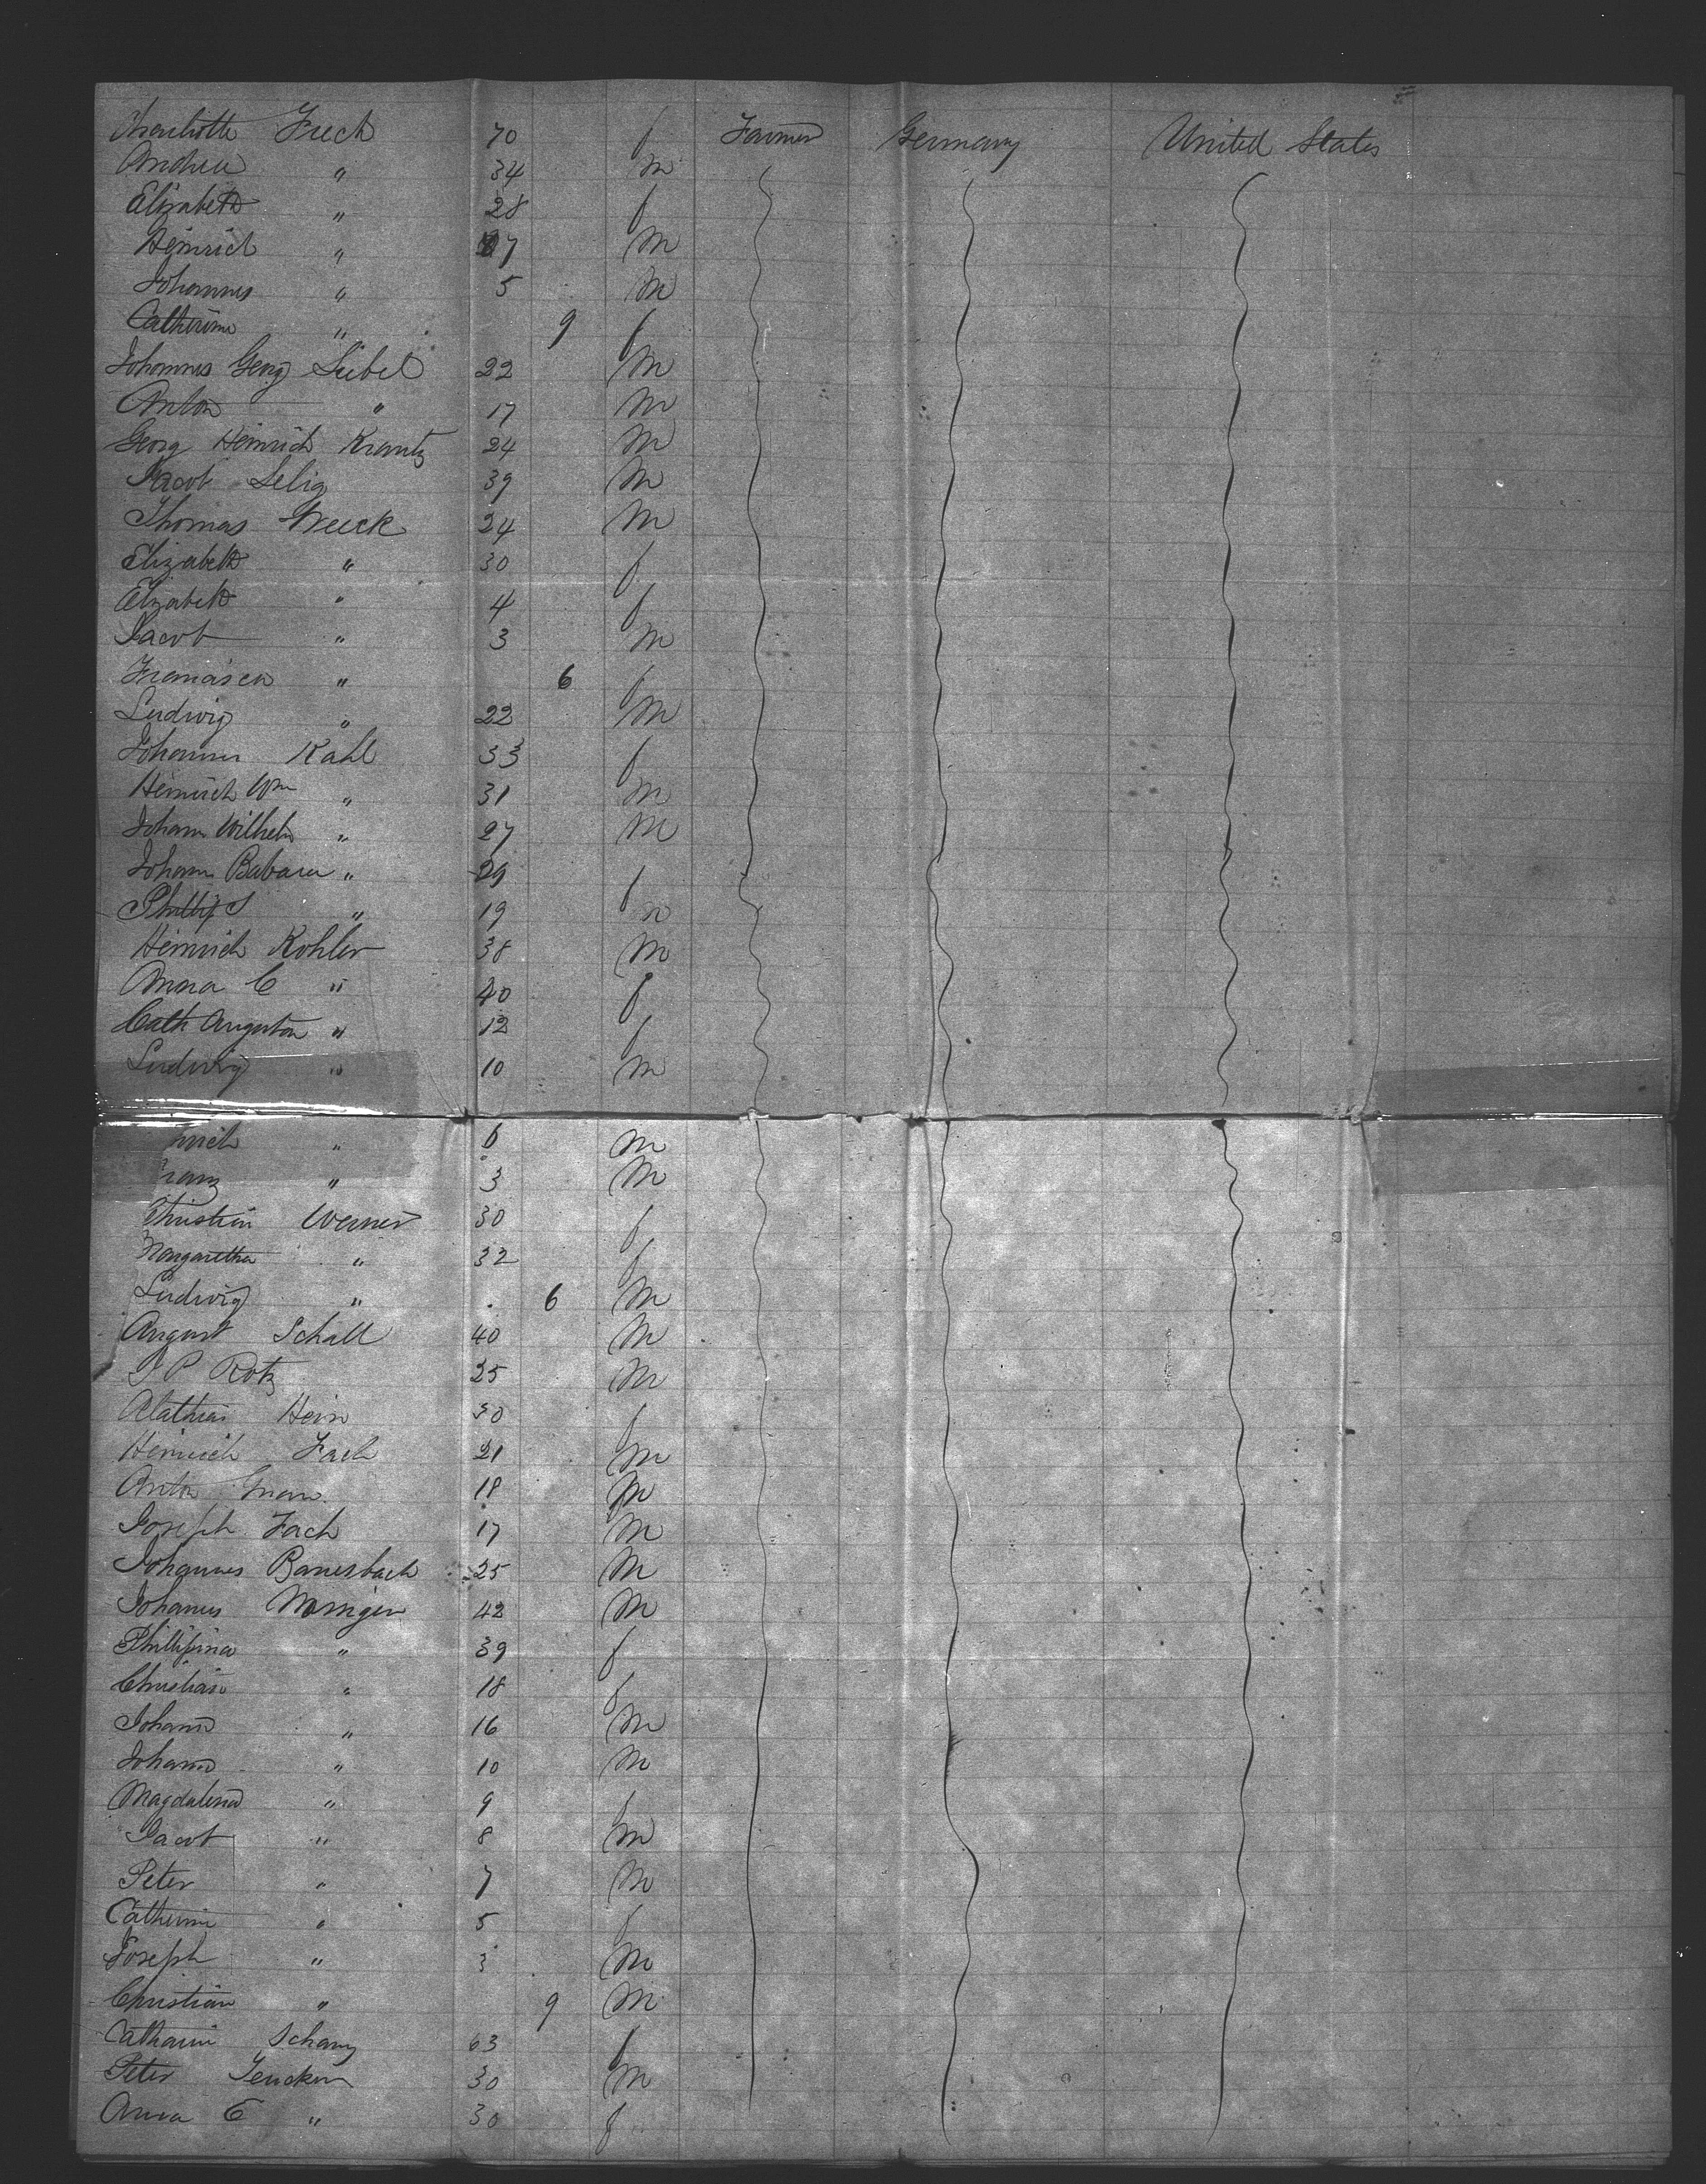 Charlotte Frech 70 f Farmer Germany United States
Andrea " 34 m
Elizabeth " 28 f
Heinrich " 7 m
Johannes " 5 m
Catherine " 9 f
Johannes Georg Seibel 22 m
Anton " 17 m
Georg Heinrich Krantz 24 m
Jacob Selig 39 m
Thomas Weeck 24 m
Elizabeth " 30 f
Elizabeth " 4 f
Jacob " 3 m
Francisca " 6 f
Ludwig " 22 m
Johannes Kahl 33 f
Heinrich Wm " 31 m
Johann Wilhelm " 27 m
Johann Babara " 29 f
Phillip S " 19 m
Heinrich Kohler 38 m
Anna C " 40 f
Cath Augusta " 12 f
Ludwig " 10 m
nrich " 6 m
ranz " 3 m
Christian Werner 30 f
Margaretha " 32 f
Ludwig " 6 m
August Schall 40 m
J P Rotz 25 m
Hein 30 f
Heinrich Fach 21 m
Anton 18 m
Joseph Fach 17 m
Johannes Banesbach 25 m
Johannes 42 m
Phillipina " 39 f
Christian " 18 f
Johann " 16 m
Johann " 10 m
Magdalena " 9 f
Jacob " 8 m
Peter " 7 m
Catherine " 5 f
Joseph " 3 m
Christian " 9 m
Catharin Schanz 63 f
Peter 30 m
Anna E " 30 f